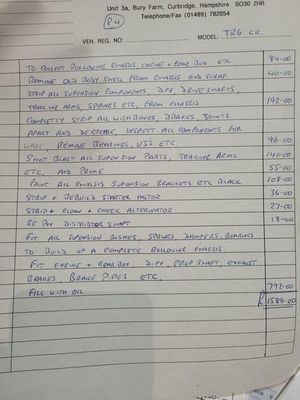 Unit 3a, Bury Farm, Curbridge, Hampshire SO30 2HB
Telephone/Fax (01489) 782054
P4
VEH. REG. NO: MODEL: TR6 CR.
TO COLLECT ROLLING CHASSIS, ENGINE + GEAR BOX ETC 84-00
REMOVE OLD BODY SHELL FROM CHASSIS AND SCRAP 40-00
STRIP ALL SUPENSION COMPONENTS, DIFF, DRIVE SHAFTS,
TRAILING ARMS, SPRINGS ETC, FROM CHASSIS 192-00
COMPLETLY STRIP ALL WISHBONES, BRAKES, JOINTS
APART AND DEGREASE, INSPECT ALL COMPONENTS FOR
WARE, REMOVE BEARINGS, UJ'S ETC. 96-00
SHOT BLAST ALL SUPENSION PARTS, TRAILING ARMS
ETC, AND PRIME 55-00
PAINT ALL CHASSIS SUPENSION BRACKETS ETC BLACK 108-00
STRIP + REBUILD STARTER MOTOR 36-00
STRIP + CLEAN + CHECK ALTERNATOR 27-00
RE PIN DISTRIBUTOR SHAFT 18-00
FIT ALL SUPENSION BUSHES, SPRINGS, DAMPERS, BEARINGS
TO BUILD UP A COMPLETE ROLLING CHASSIS
FIT ENGINE + GEAR BOX, DIFF, PROP SHAFT, EXHAUST
BRAKES, BRAKE PIPES ETC,
FILL WITH OIL 792-00
£1589-00